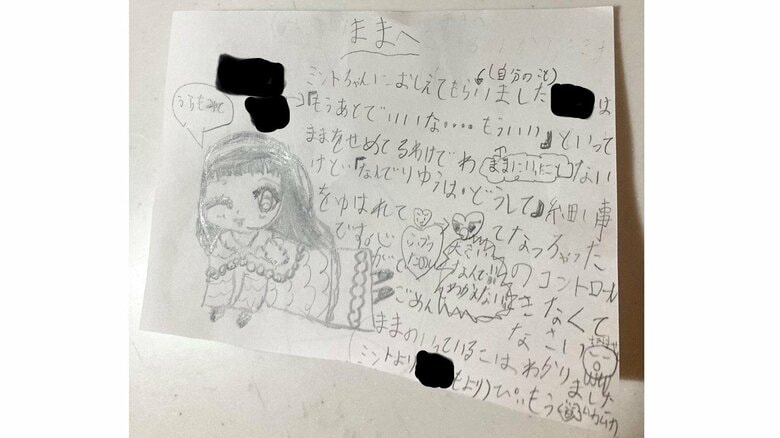 ままへ
(自分のこと)
ミントちゃんにおしえてもらいました は
『もうあとでいいな・・・・もういい』といって
ままをせめてるわけでわ ままにいったこと ない
けど『なんでりゆうは・どうして』細い事
をゆはれて てなっちゃった
です。 のコントロール
大きい なんで わかんない
できなくて
ごめんなさい
ままのいっているこは、わかりました
(ミントより もより) もう ムカムカ
うらもみて